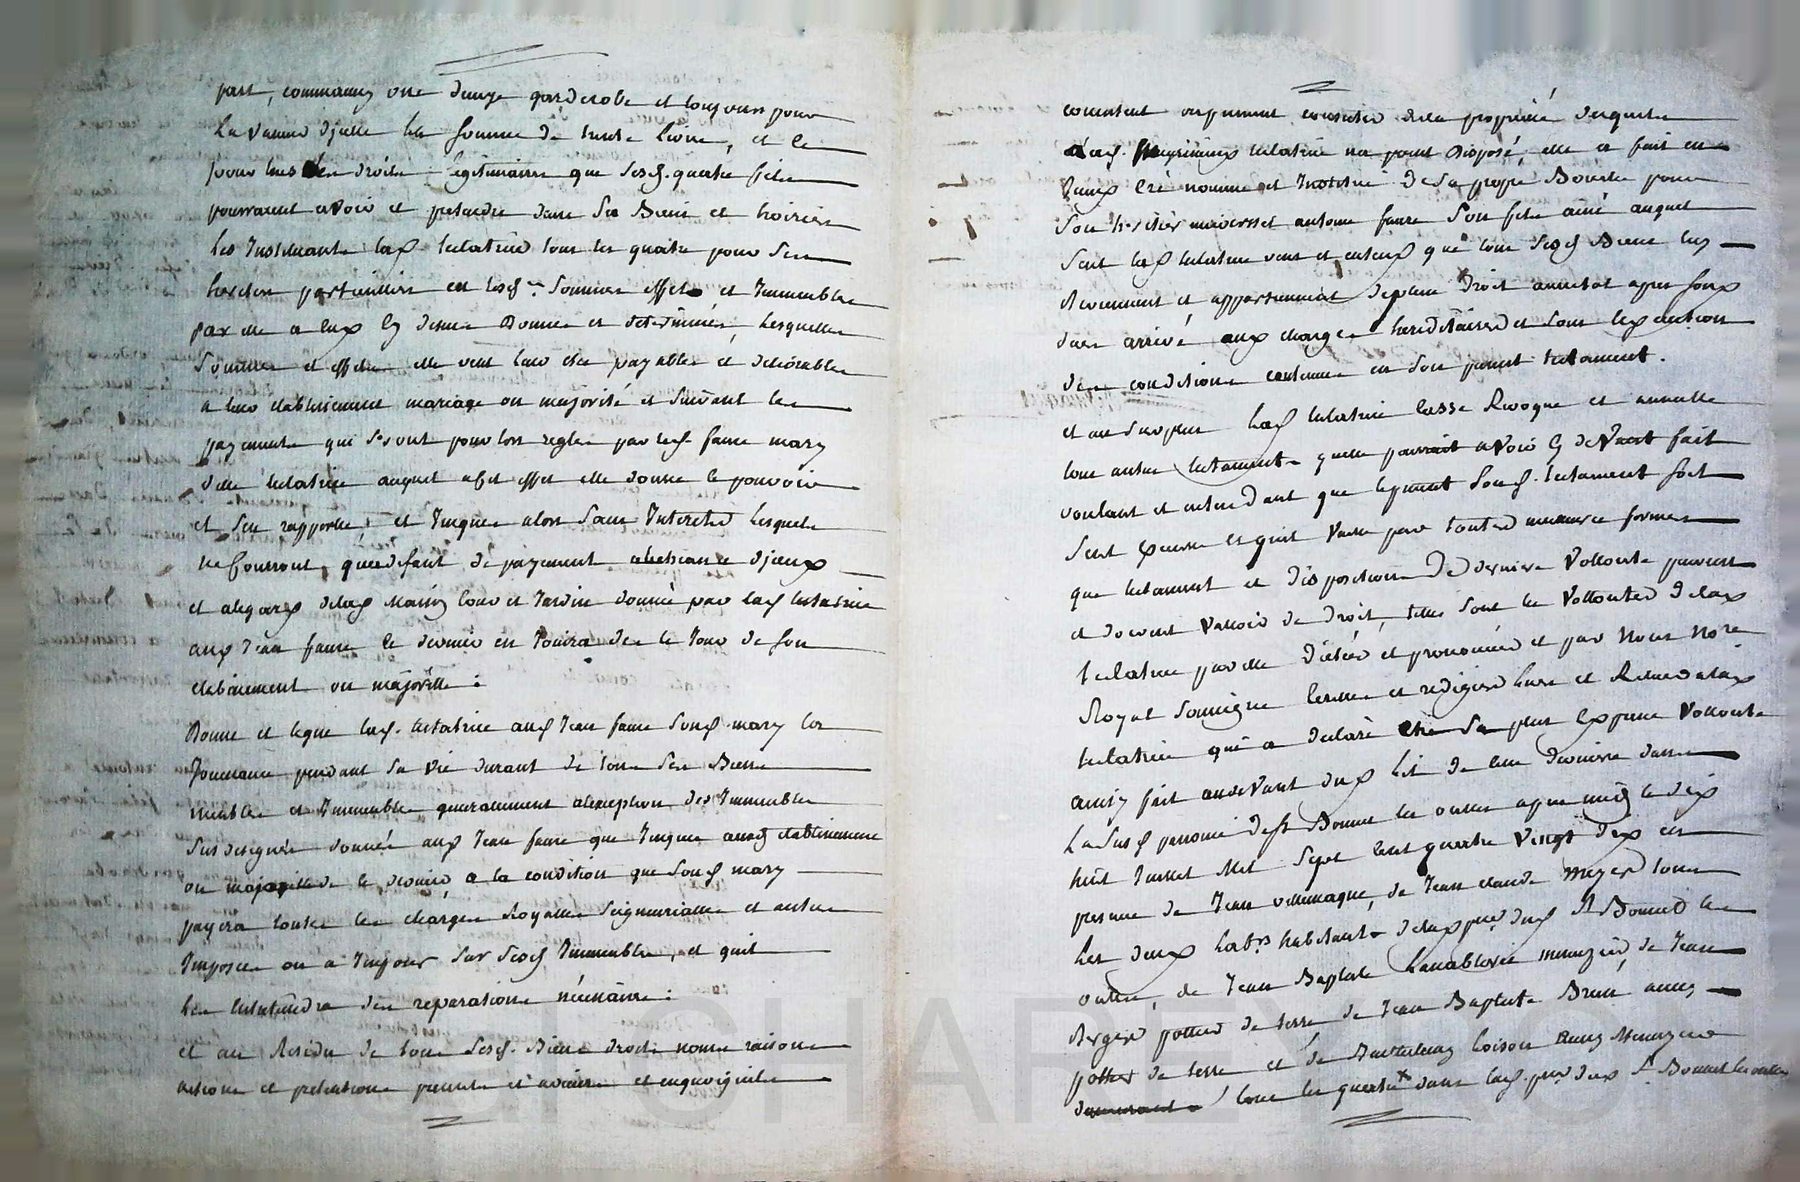 part, communaux une garderobe et toujours pour
La valeur d'jcelle la somme de trente livres, et le
pour tous les droits légitimaires que sesd. quatre fils
pourraient avoir et pretendre dans ses Biens et hoiries
Les Instituant lad. testatrice tous les quatre pour ses
heretiers particulliers en lesd. sommes effets et Immeubles
par elle a eux cy dessus Donnés et déterminés, Lesquelles
Sommes et effets elle veut leur etre payables et délivrables
a leur etablissement mariage ou majorité et suivant les
payements qui seront pour lors reglés par led. faure mary
d'elle testatrice auquel a cet effet elle donne le pouvoir
et s'en rapporte, et jusques alors sans Interets Lesquels
ne courront qu'a deffaut de payement a l'echeance d'jceux
et a legard de lad. Maison cour et Jardin donnée par lad. testatrice
aud. Jean faure le dernier en Jouira dès le Jour de son
etablissement ou majorité :
Donne et legue lad. testatrice aud. Jean faure sond. mary la
Jouissance pendant sa vie durant de tous ses Biens
meubles et Immeubles generalement a l'exeption des Immeubles
susdesignés donnés aud. Jean faure que jusques aud. etablissement
ou majorité de le dernier, a la condition que sond. mary
payera toutes les charges Royalles seigneurialles et autres
Imposées ou a Imposer sur sesd. Immeubles, et quil
les entretiendra des reparations nécessaires :
et au Residu de tous sesd. Biens droits noms raisons
actions et pretentions presents et avenirs et en quoi quils
consistent ou puissent consister de la propriété desquels
lad. testatrice n'a point Disposé, elle a fait
créé nommé et Institué de sa propre Bouche pour
son heretier universel antoine faure son fils ainé auquel
Seul lad. testatrice veut et entend que tous sesd. Biens
Reviennent et appartiennent de plein Droit aussitot apres son
deces arrivé, aux charges hereditaires et sous l'execution
des conditions contenues en son present testament.
et au surplus Lad. testatrice casse Revoque et annulle
tous autres testaments quelle pourrait avoir cy devant fait
voulant et entendant que le present sond. testament soit
Seul executé et quil vaille par toutes meilleures formes
que testament et disposition De derniere Vollonté peuvent
et doivent valloir de Droit, telles sont les Vollontés de lad.
testatrice par elle dictées et prononcées et par Nous Nore
Royal soussigné receues et redigées Lues et Relues a lad.
testatrice qui a declaré etre sa plus expresse Vollonté
ainsy fait au devant du lit de leur derniere dans
La susd. paroisse de St Bonnet les oulles apres midy le dix
huit Juillet Mil Sept Cent quatre Vingt dix en
presence de Jean villemagne, de Jean claude Meyer tous
Les deux Labrs habitants de lad. psse. dud. St Bonnet les
oulles, de Jean Baptiste menuzier, de Jean
Berger pottier de terre de Jean Baptiste Brun aussy
pottier de terre et de Barthelemy Loison Aussy Menuzier
tous les quatre dans lad. psse. dud. St Bonnet les oulles